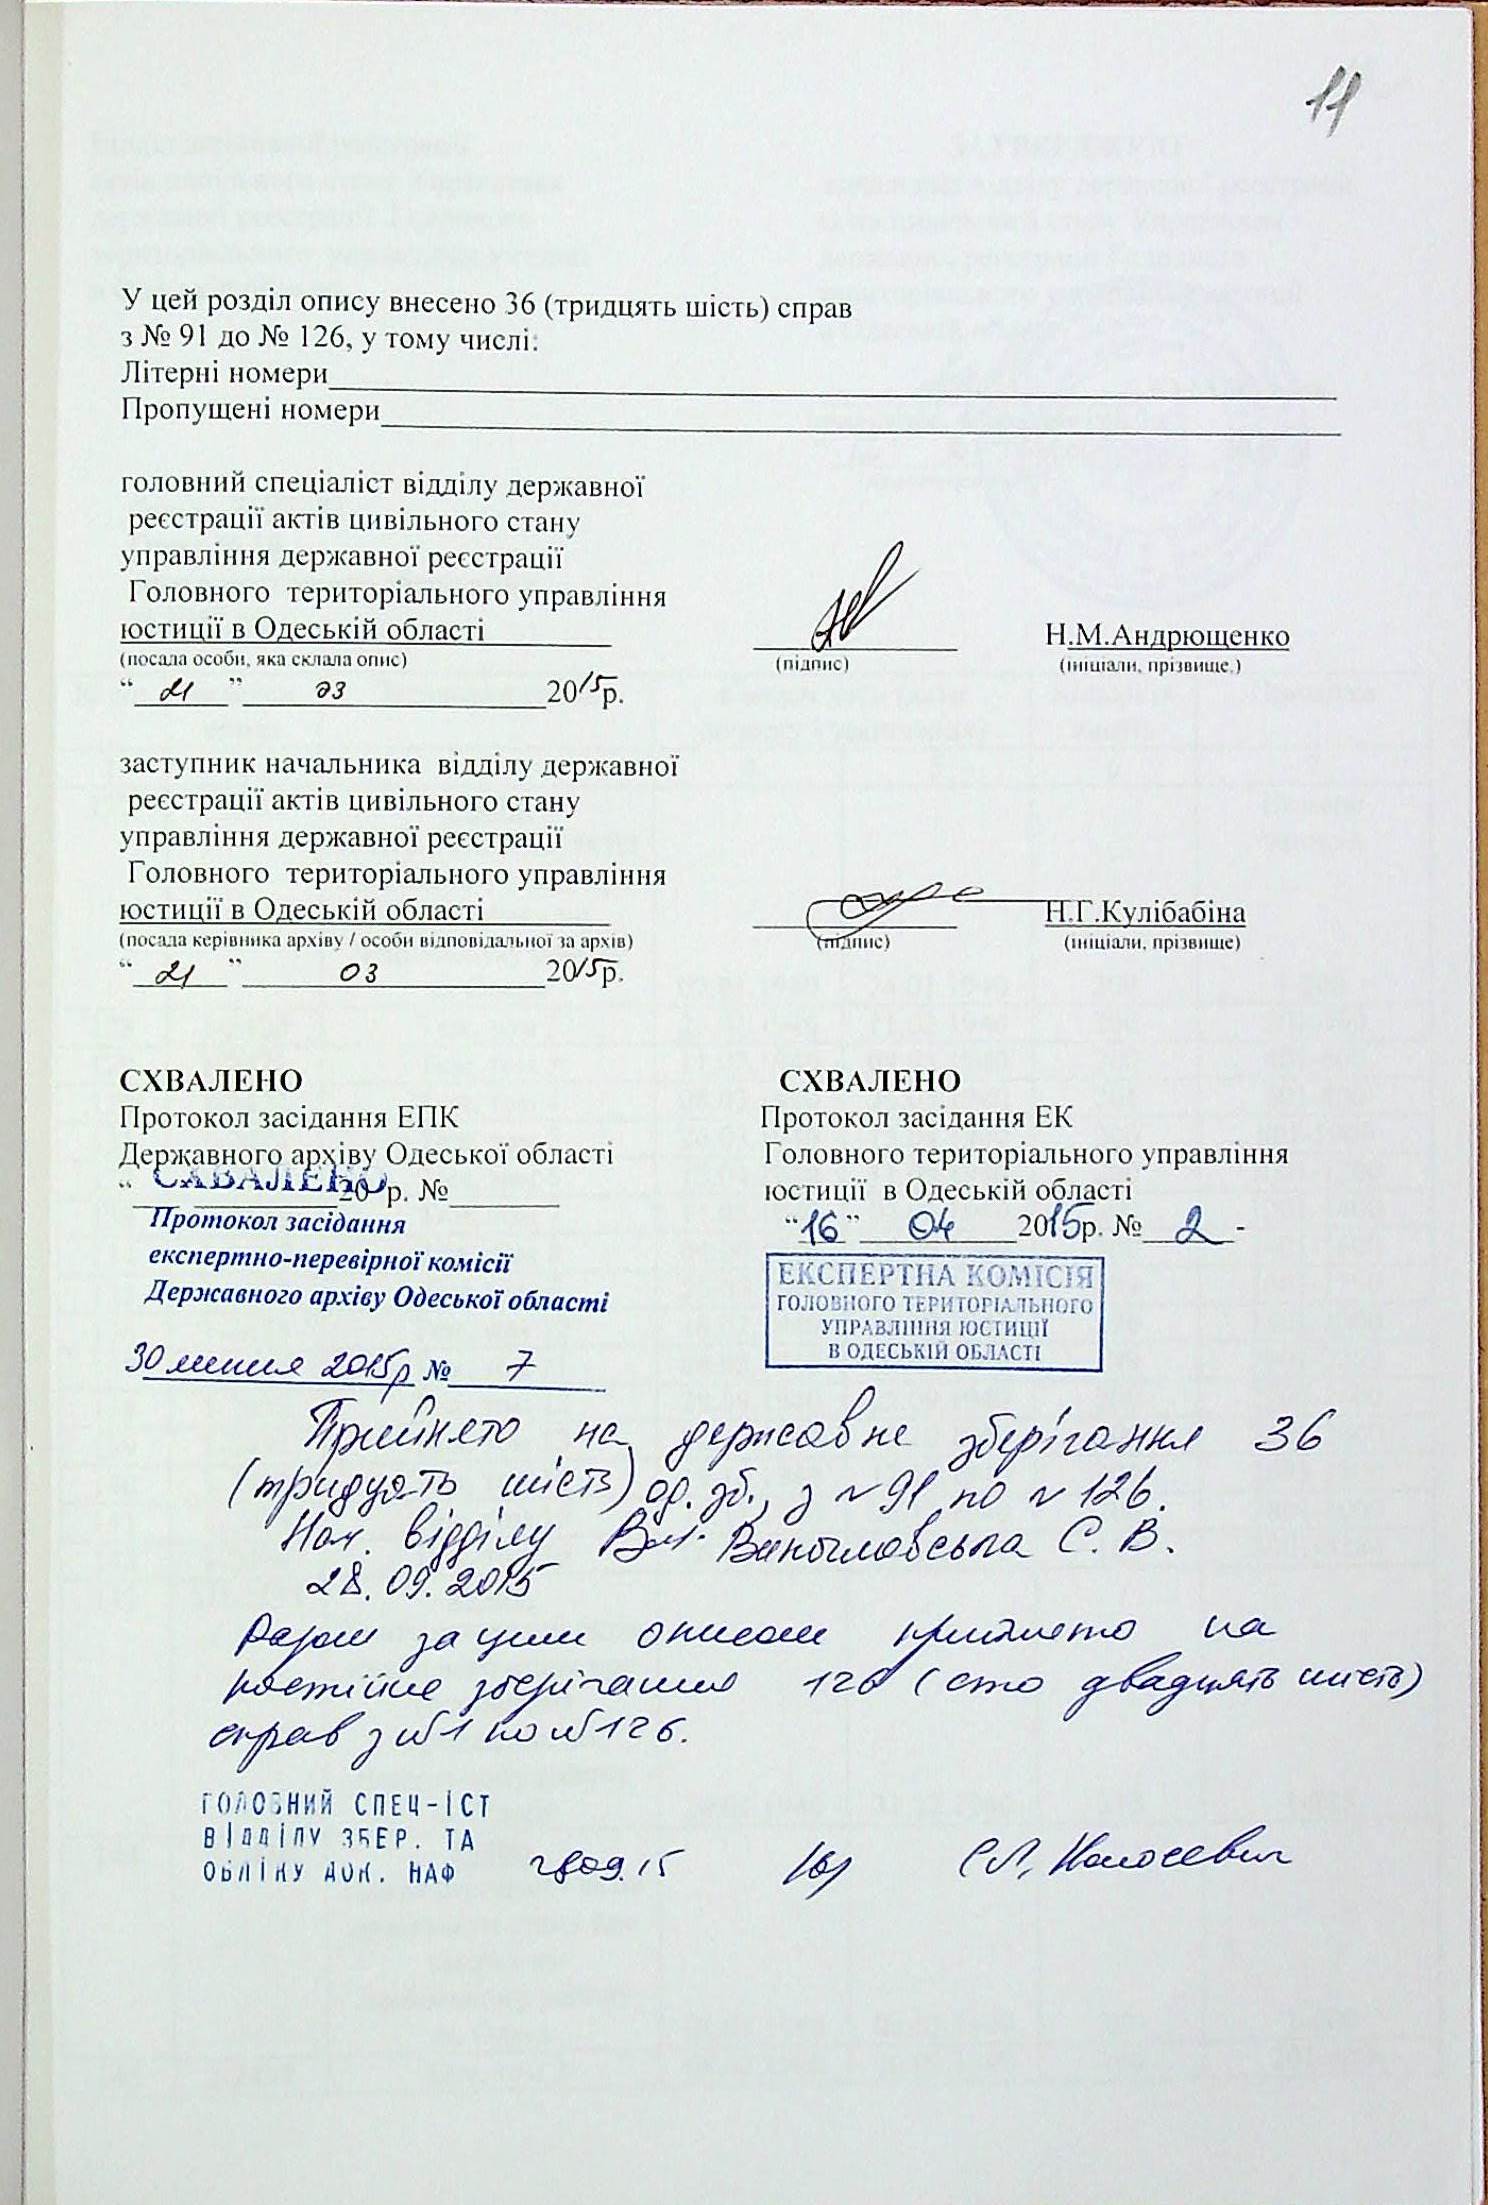 11
У цей розділ опису внесено 36 (тридцять шість) справ
з № 91 до № 126, у тому числі:
Літерні номери
Пропущені номери
головний спеціаліст відділу державної
реєстрації актів цивільного стану
управління державної реєстрації
Головного територіального управління
юстиції в Одеській області Н.М.Андрющенко
(посада особи, яка склала опис) (підпис) (ініціали, прізвище,)
“ 21 ” 03 2015р.
заступник начальника відділу державної
реєстрації актів цивільного стану
управління державної реєстрації
Головного територіального управління
юстиції в Одеській області Н.Г.Кулібабіна
(посада керівника архіву / особи відповідальної за архів) (підпис) (ініціали, прізвище)
“ 21 ” 03 2015р.
СХВАЛЕНО
Протокол засідання ЕПК
Державного архіву Одеської області
“ 20 р. №
СХВАЛЕНО
Протокол засідання
експертно-перевірної комісії
Державного архіву Одеської області
30 липня 2015р № 7
СХВАЛЕНО
Протокол засідання ЕК
Головного територіального управління
юстиції в Одеській області
“16” 04 2015р. № 2 -
ЕКСПЕРТНА КОМІСІЯ
ГОЛОВНОГО ТЕРИТОРІАЛЬНОГО
УПРАВЛІННЯ ЮСТИЦІЇ
В ОДЕСЬКІЙ ОБЛАСТІ
Прийнято на державне зберігання 36
(тридцять шість) од. зб., з № 91 по № 126.
Нач. відділу С. В.
28.09.2015
Разом за цим описом прийнято на
постійне зберігання 126 (сто двадцять шість)
справ з №1 по №126.
ГОЛОВНИЙ СПЕЦ-ІСТ
ВІДДІЛУ ЗБЕР. ТА
ОБЛІКУ ДОК. НАФ 28.09.15